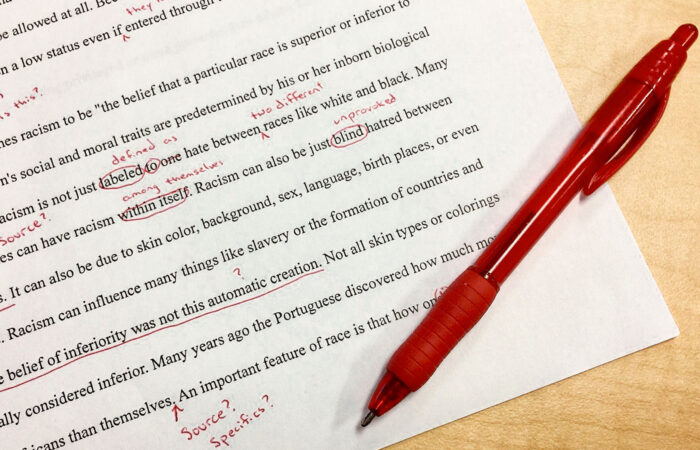 be allowed at all. Bec
they
n a low status even if entered through
is this?
nes racism to be "the belief that a particular race is superior or inferior to
n's social and moral traits are predetermined by his or her inborn biological
two different
defined as
unprovoked
acism is not just labeled to one hate between races like white and black. Many
among themselves
es can have racism within itself. Racism can also be just blind hatred between
Source?
s. It can also be due to skin color, background, sex, language, birth places, or even
. Racism can influence many things like slavery or the formation of countries and
?
e belief of inferiority was not this automatic creation. Not all skin types or colorings
ally considered inferior. Many years ago the Portuguese discovered how much mo
icans than themselves. An important feature of race is that how on
Source?
Specifics?